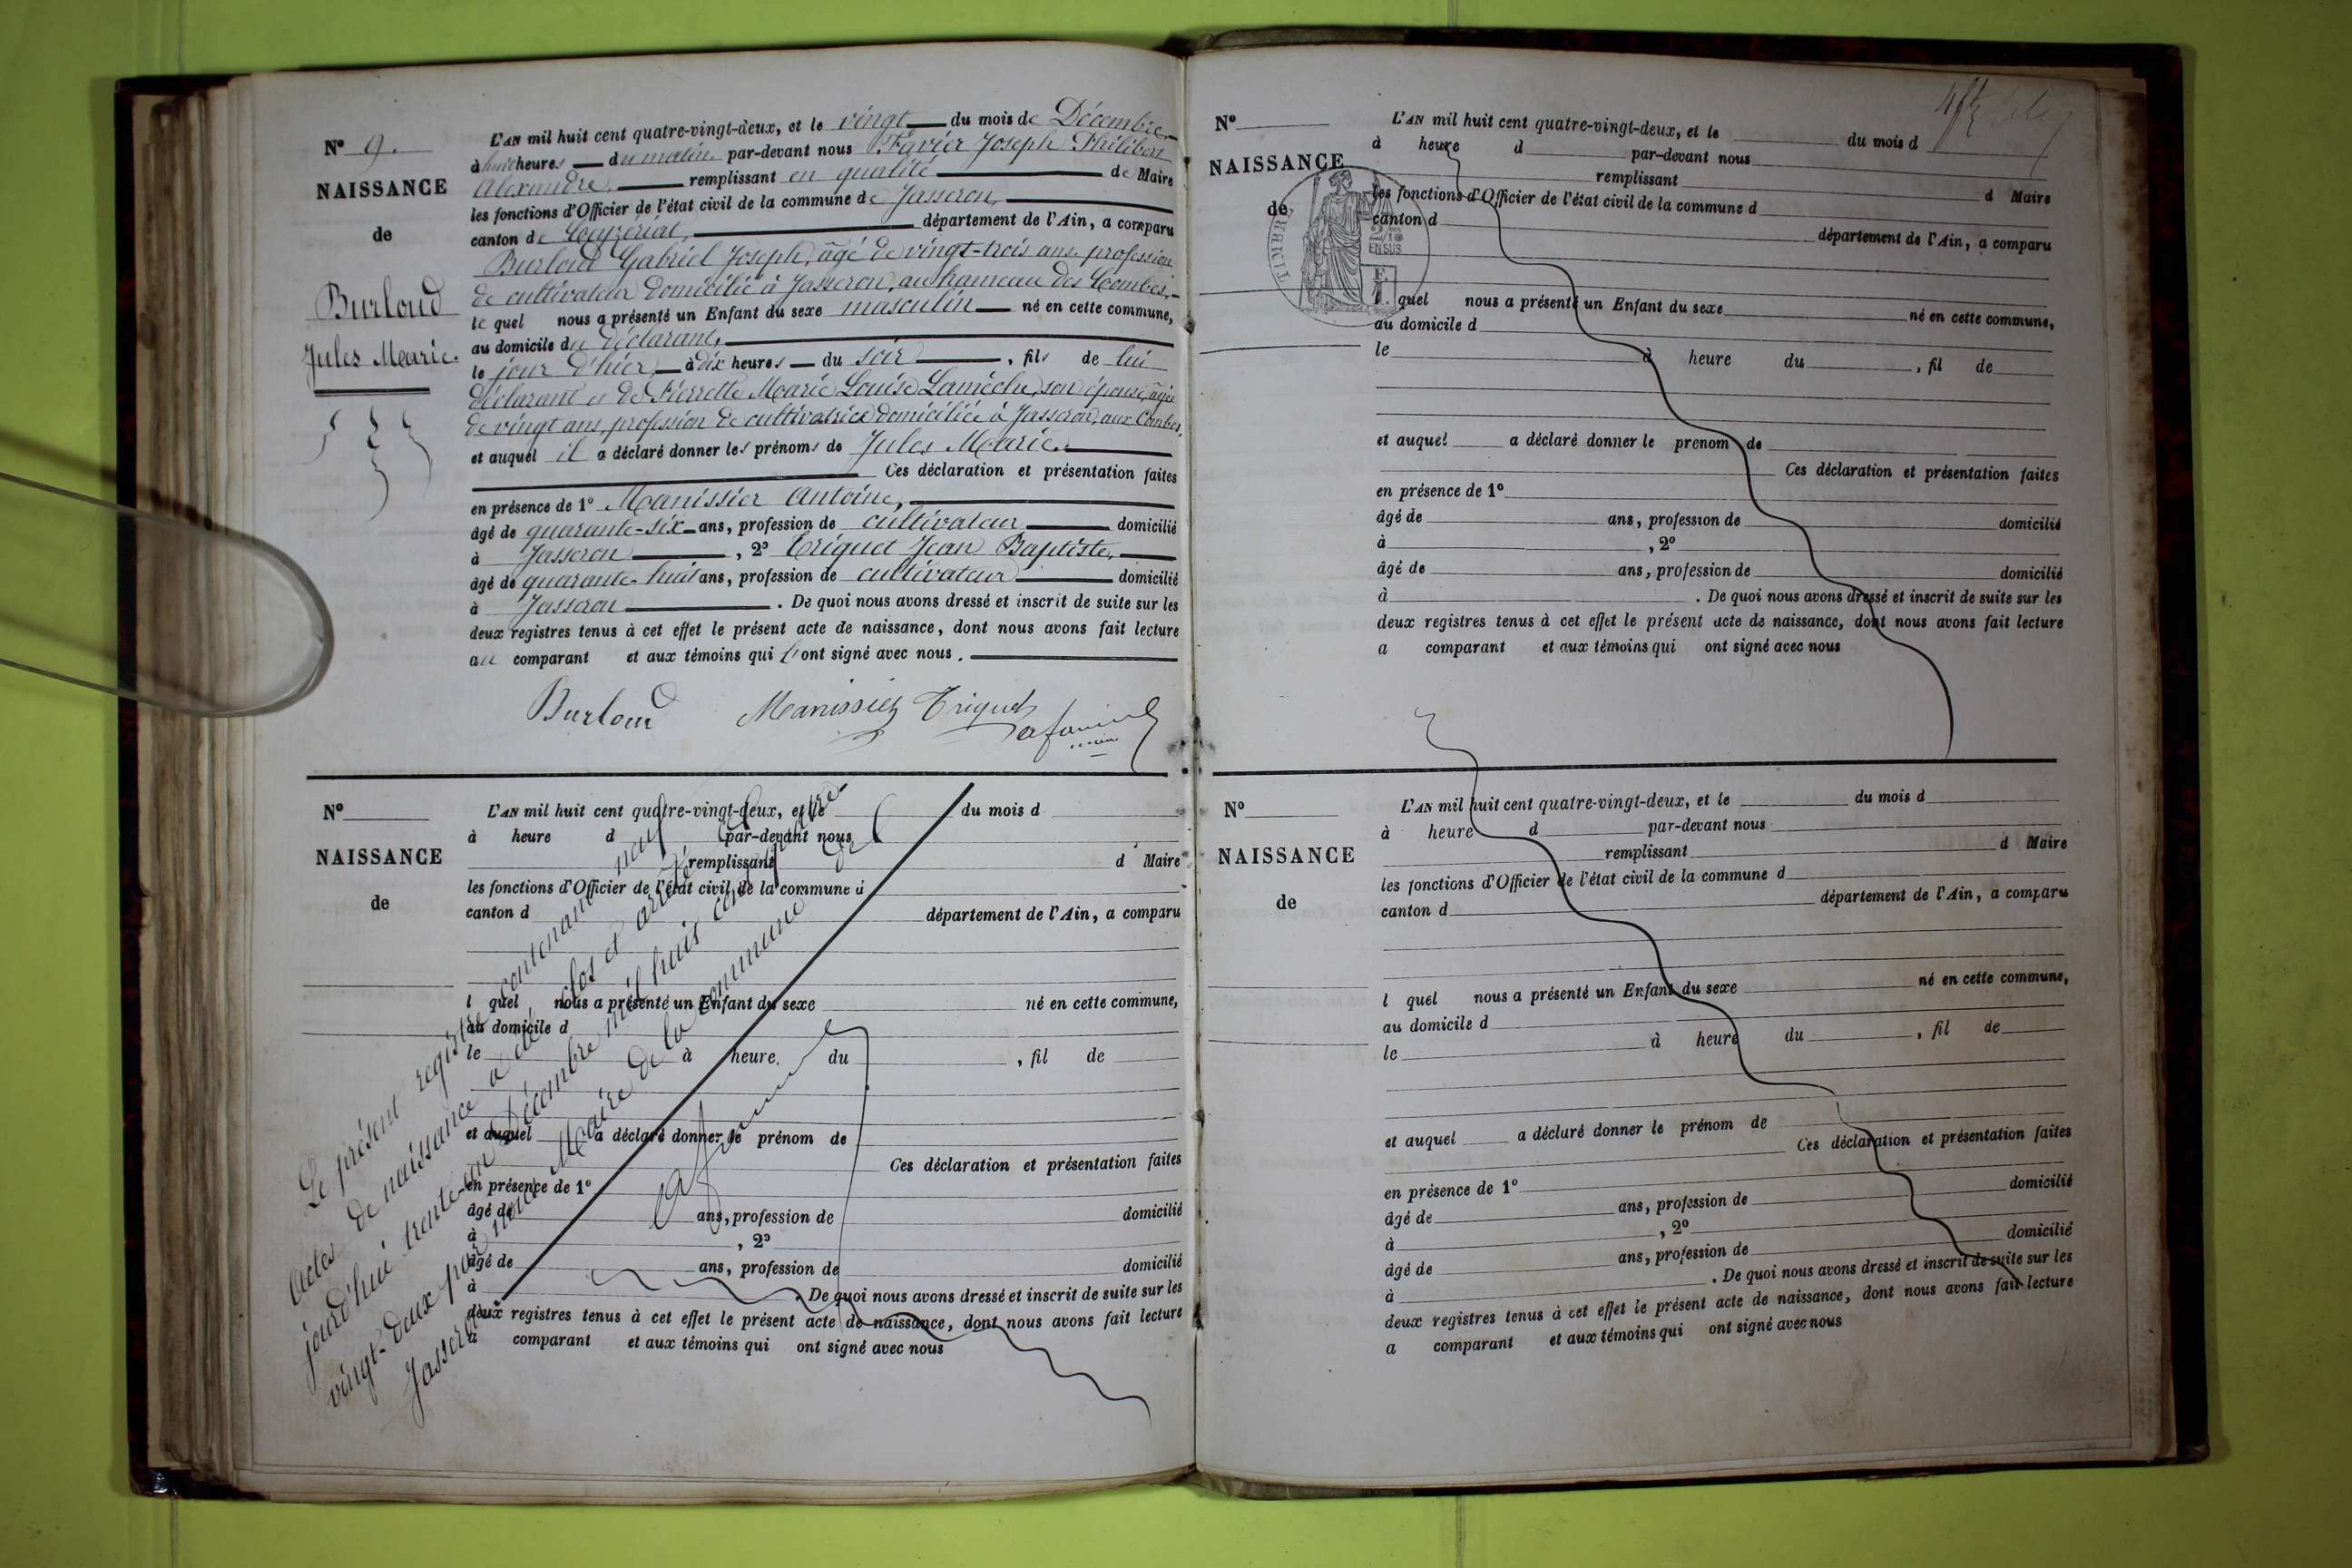 N° 9.
NAISSANCE
de
Burloud
Jules Marie.
L'AN mil huit cent quatre-vingt-deux, et le vingt du mois de Décembre
à huit heures du matin par-devant nous Favier Joseph Philibert
Alexandre, remplissant en qualité de Maire
les fonctions d'Officier de l'état civil de la commune de Jasseron,
canton de Ceyzériat, département de l'Ain, a comparu
Burloud Gabriel Joseph, âgé de vingt-trois ans, profession
de cultivateur domicilié à Jasseron, au hameau des Combes,
le quel nous a présenté un Enfant du sexe masculin né en cette commune,
au domicile du déclarant,
le jour d'hier, à dix heures du soir, fils de lui
déclarant et de Pierrette Marie Louise Lamèche, son épouse, âgée
de vingt ans, profession de cultivatrice domiciliée à Jasseron, aux Combes,
et auquel il a déclaré donner les prénoms de Jules Marie.
Ces déclaration et présentation faites
en présence de 1° Manissier Antoine,
âgé de quarante-six ans, profession de cultivateur domicilié
à Jasseron, 2° Triquet Jean Baptiste,
âgé de quarante-huit ans, profession de cultivateur domicilié
à Jasseron. De quoi nous avons dressé et inscrit de suite sur les
deux registres tenus à cet effet le présent acte de naissance, dont nous avons fait lecture
au comparant et aux témoins qui ont signé avec nous.
Burloud Manissier Triquet
N°
NAISSANCE
de
L'AN mil huit cent quatre-vingt-deux, et le du mois d
à heure d par-devant nous
remplissant d Maire
les fonctions d'Officier de l'état civil de la commune d
canton d département de l'Ain, a comparu
l quel nous a présenté un Enfant du sexe né en cette commune,
au domicile d
le à heure du , fil de
et auquel a déclaré donner le prénom de
Ces déclaration et présentation faites
en présence de 1°
âgé de ans, profession de domicilié
à , 2°
âgé de ans, profession de domicilié
à . De quoi nous avons dressé et inscrit de suite sur les
deux registres tenus à cet effet le présent acte de naissance, dont nous avons fait lecture
a comparant et aux témoins qui ont signé avec nous
Le présent registre contenant neuf
actes de naissance a été clos et arrêté
jourd'hui trente-un Décembre mil huit cent quatre
vingt-deux par nous Maire de la commune de
Jasseron
N°
NAISSANCE
de
TIMBRE
2/10
EN SUS
L'AN mil huit cent quatre-vingt-deux, et le du mois d
à heure d par-devant nous
remplissant d Maire
les fonctions d'Officier de l'état civil de la commune d
canton d département de l'Ain, a comparu
l quel nous a présenté un Enfant du sexe né en cette commune,
au domicile d
le à heure du , fil de
et auquel a déclaré donner le prenom de
Ces déclaration et présentation faites
en présence de 1°
âgé de ans, profession de domicilié
à , 2°
âgé de ans, profession de domicilié
à . De quoi nous avons dressé et inscrit de suite sur les
deux registres tenus à cet effet le présent acte de naissance, dont nous avons fait lecture
a comparant et aux témoins qui ont signé avec nous
N°
NAISSANCE
de
L'AN mil huit cent quatre-vingt-deux, et le du mois d
à heure d par-devant nous
remplissant d Maire
les fonctions d'Officier de l'état civil de la commune d
canton d département de l'Ain, a comparu
l quel nous a présenté un Enfant du sexe né en cette commune,
au domicile d
le à heure du , fil de
et auquel a déclaré donner le prénom de
Ces déclaration et présentation faites
en présence de 1°
âgé de ans, profession de domicilié
à , 2°
âgé de ans, profession de domicilié
à . De quoi nous avons dressé et inscrit de suite sur les
deux registres tenus à cet effet le présent acte de naissance, dont nous avons fait lecture
a comparant et aux témoins qui ont signé avec nous